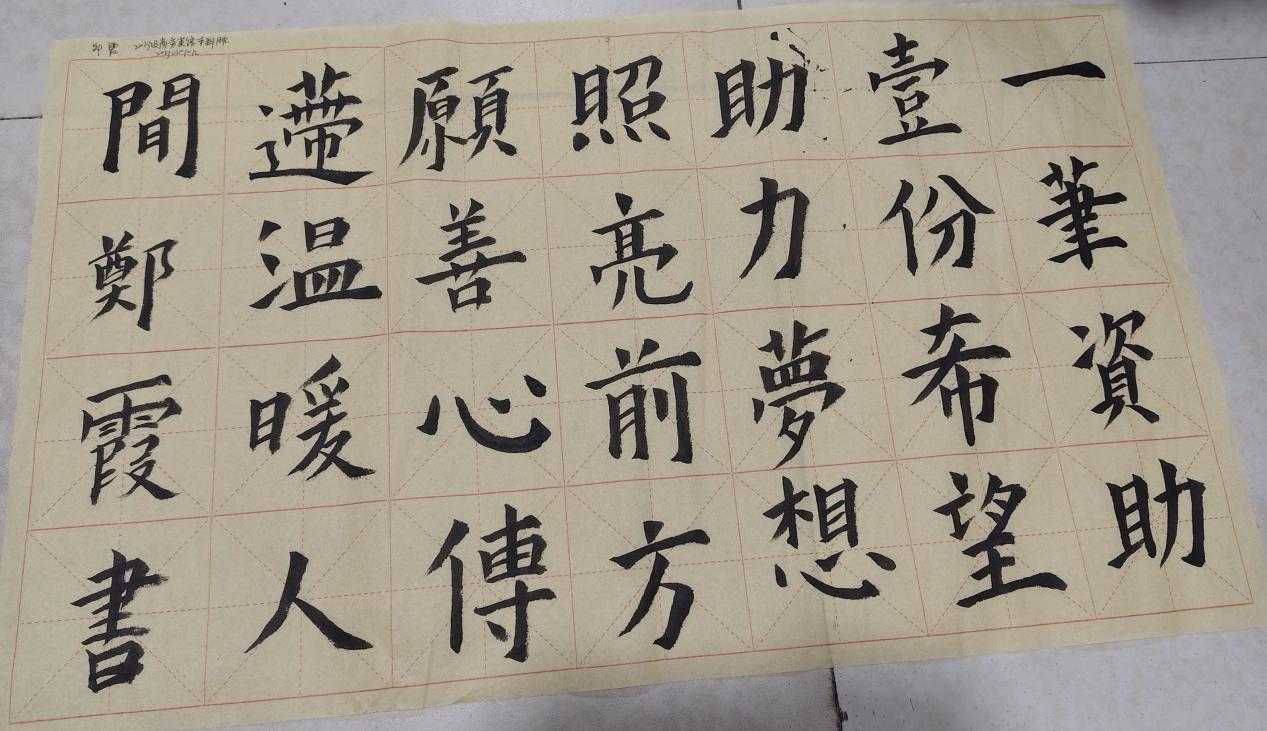 一筆資助
壹份希望
助力夢想
照亮前方
願善心傳
遰温暖人
間鄭霞書